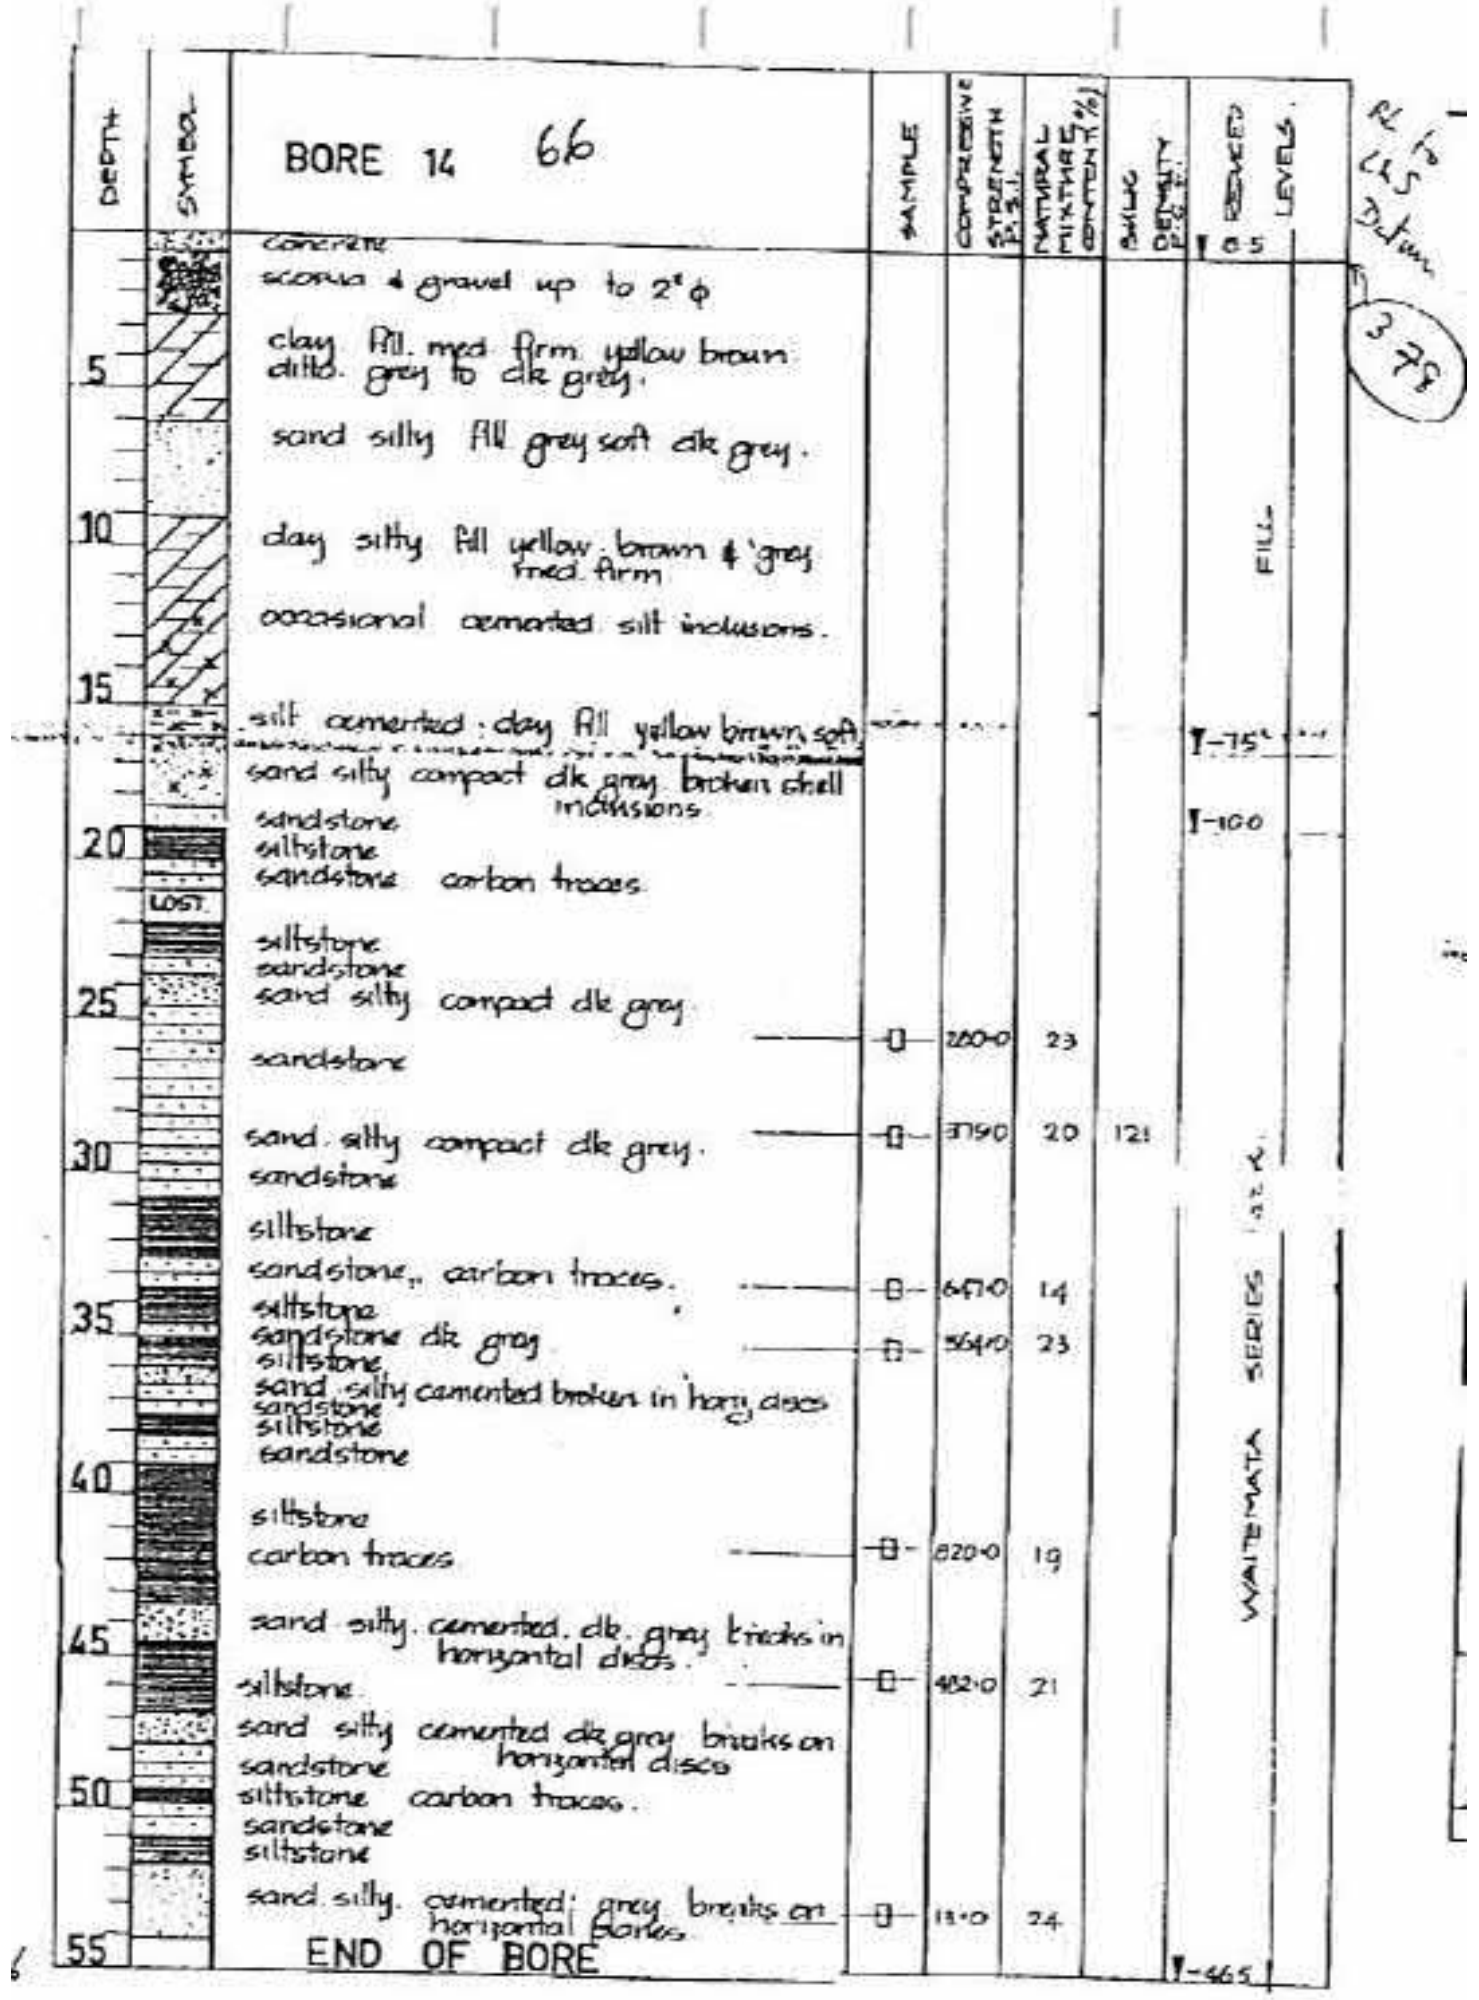 DEPTH
SYMBOL
BORE 14 66
SAMPLE
COMPRESSIVE STRENGTH P.S.I.
NATURAL MIXTURE CONTENT (%)
BULK DENSITY P.C.F.
REDUCED LEVELS.
RL to
L&S
Datum
3.78
concrete
0.5
scoria & gravel up to 2" φ
clay fill. med. firm yellow brown
5
ditto. grey to dk grey.
sand silly fill grey soft dk grey.
10
clay silty fill yellow brown & grey
med. firm
FILL
occasional cemented silt inclusions.
15
silt cemented: clay fill yellow brown soft
-75
sand silty compact dk grey broken shell
inclusions.
sandstone
-100
20
siltstone
sandstone carbon traces
LOST.
siltstone
sandstone
25
sand silty compact dk grey
280.0 23
sandstone
30
sand. silty compact dk grey.
379.0 20 121
sandstone
siltstone
sandstone,. carbon traces.
647.0 14
35
siltstone
sandstone dk grey
564.0 23
siltstone
sand silty cemented broken in discs
sandstone
siltstone
sandstone
40
siltstone
carbon traces
820.0 19
45
sand silty. cemented. dk. grey breaks in
horizontal discs.
siltstone.
482.0 21
sand silty cemented dk grey breaks on
horizontal discs
sandstone
50
siltstone carbon traces.
sandstone
siltstone
sand. silty. cemented; grey breaks on
horizontal planes.
24
WAITEMATA SERIES
55
END OF BORE
-465